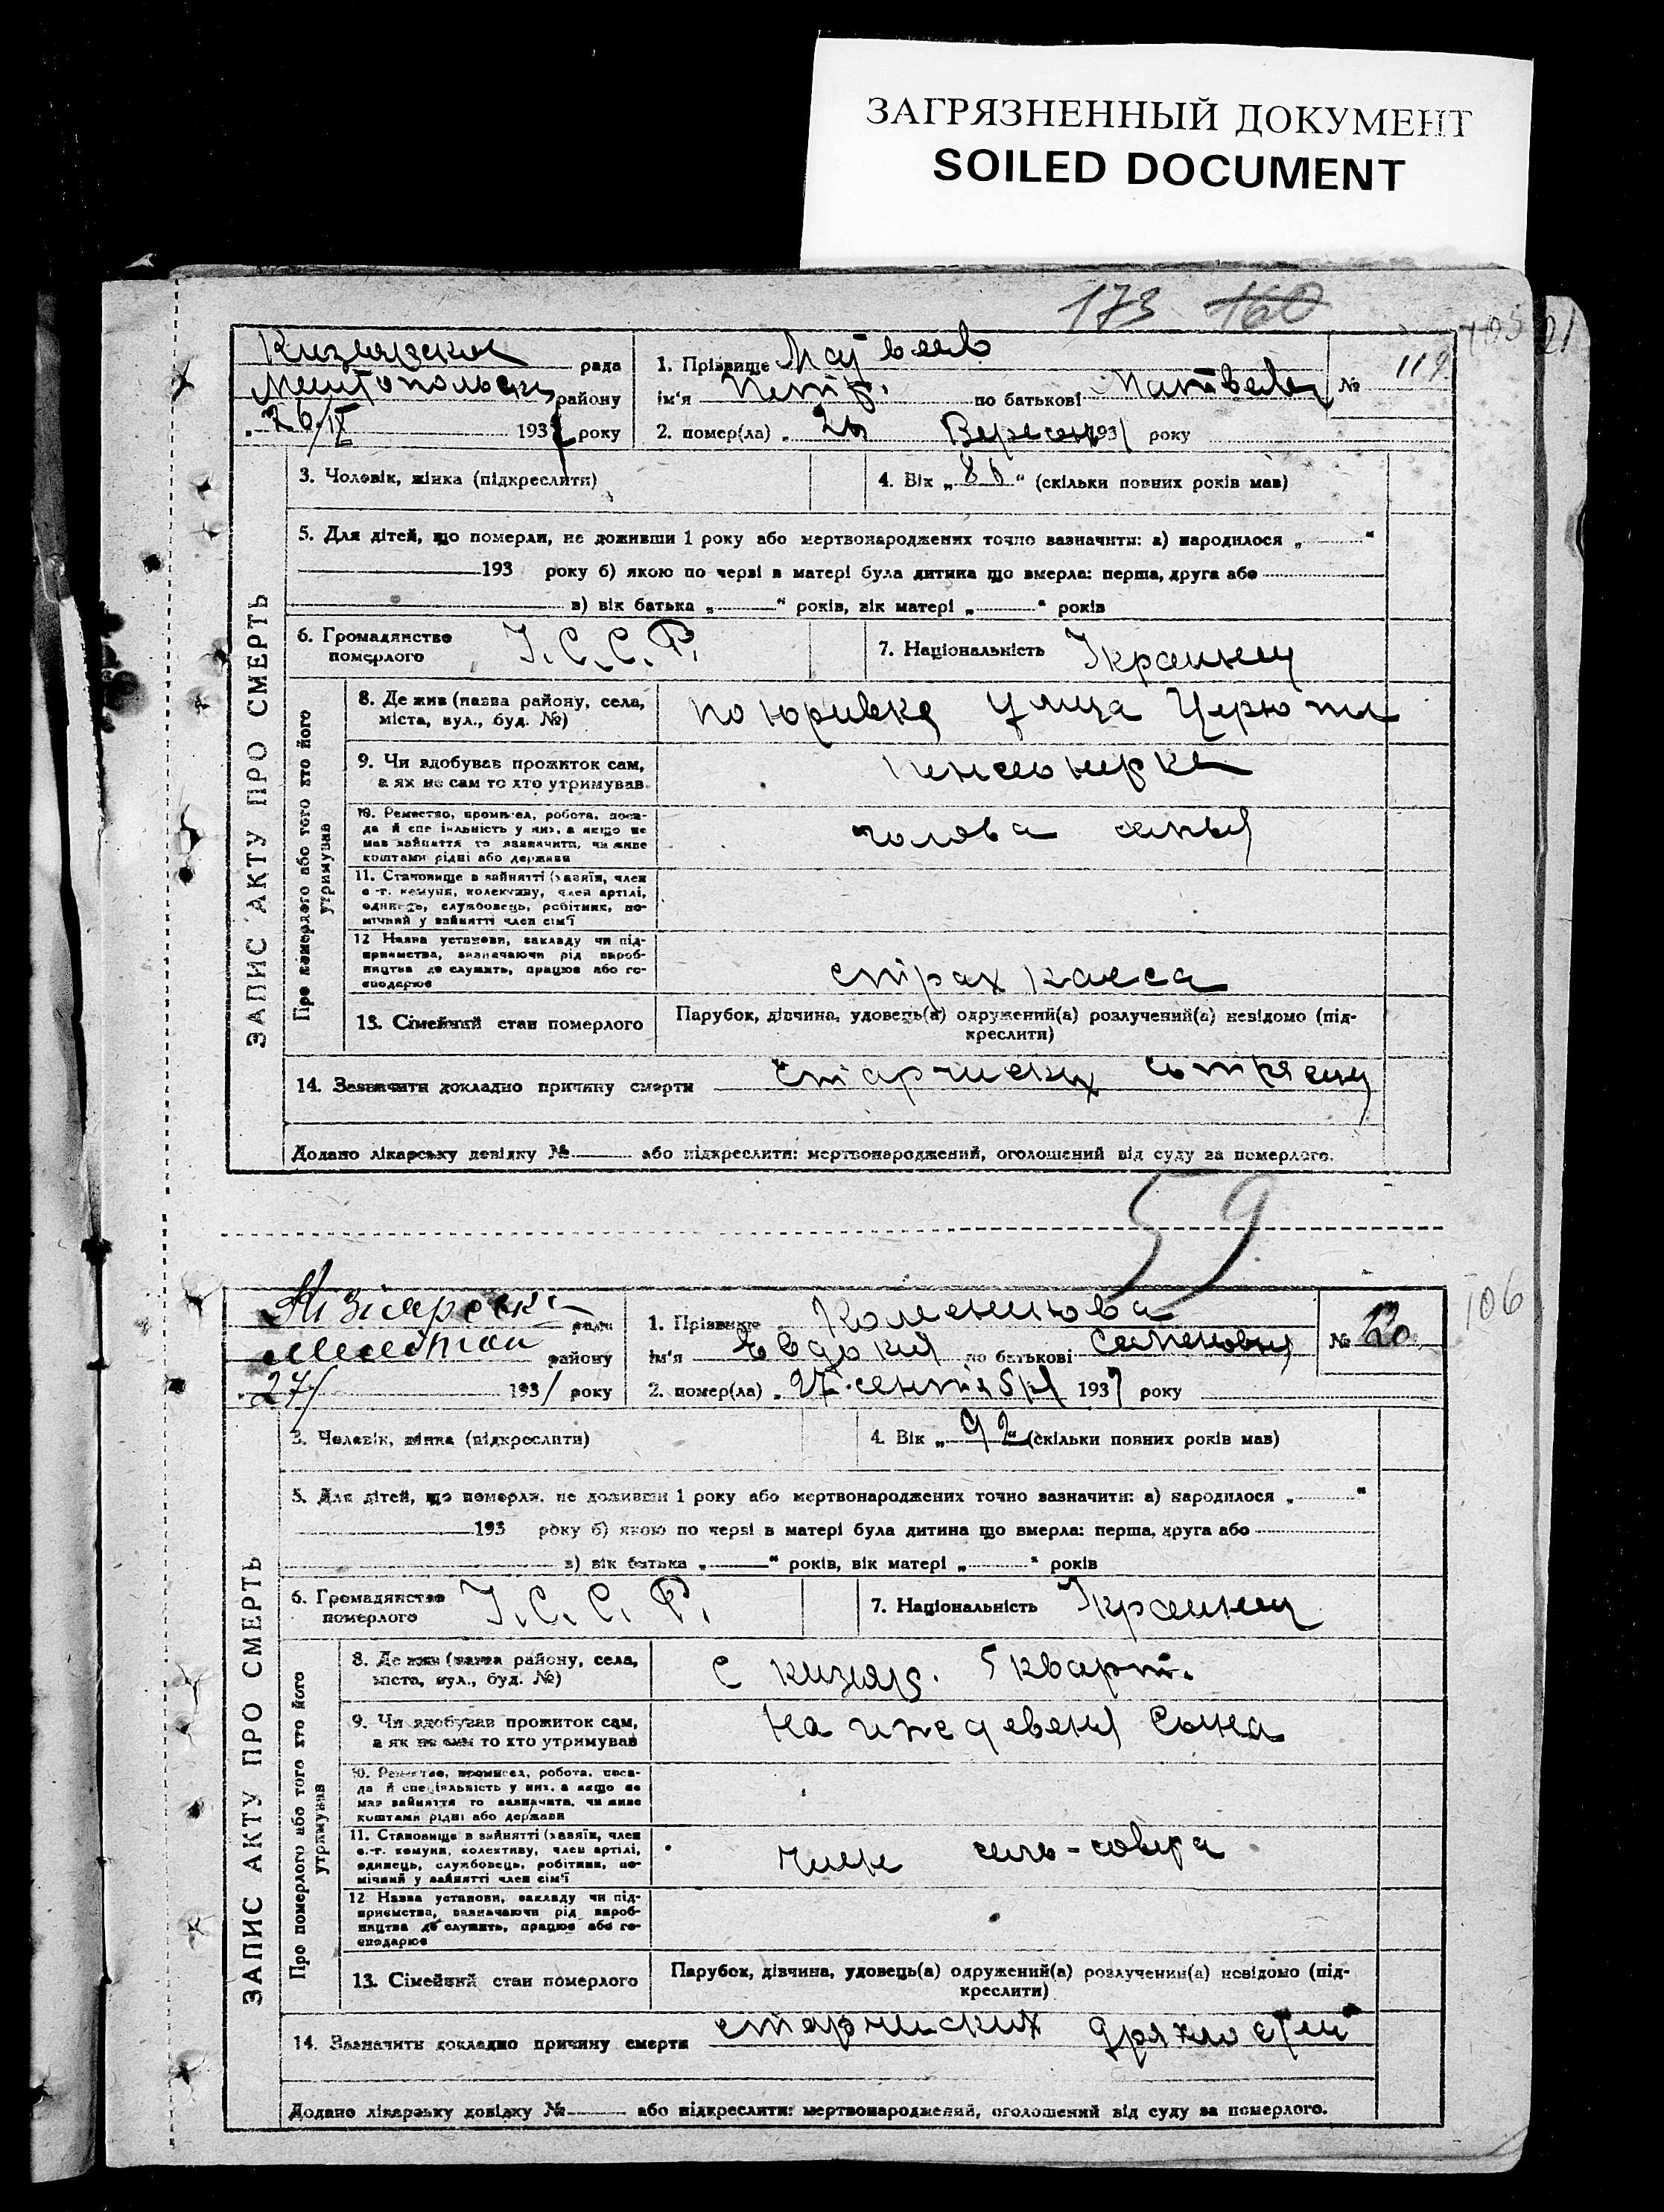 ЗАГРЯЗНЕННЫЙ ДОКУМЕНТ
SOILED DOCUMENT
173 160
рада
району
26/IX 1931 року
1. Прізвище
ім'я Петр. по батькові
№ 119
2. помер(ла) „ 26 1931 року
3. Чоловік, жінка (підкреслити)
4. Вік „ “ (скільки повних років мав)
5. Для дітей, що померли, не доживши 1 року або мертвонароджених точно зазначити: а) народилося „ “
193 року б) якою по черзі в матері була дитина що вмерла: перша, друга або
в) вік батька „ “ років, вік матері „ “ років
6. Громадянство
померлого
У.С.С.Р.
7. Національність Украинец
ЗАПИС АКТУ ПРО СМЕРТЬ
Про померлого або того хто його
утримував
8. Де жив (назва району, села,
міста, вул., буд. №)
улица
9. Чи здобував прожиток сам,
а як не сам то хто утримував
пенсионерка
10. Ремество, промисел, робота, поса-
да й спеціяльність у них, а якщо не
мав зайняття то зазначити, чи живе
коштами рідні або держави
голова семьи
11. Становище в зайнятті (хазяїн, член
с.-г. комуни, колективу, член артілі,
одинець, службовець, робітник, по-
мічний у зайнятті член сім'ї
12 Назва установи, закладу чи під-
приємства, зазначаючи рід вироб-
ництва де служить, працює або го-
сподарює
страх касса
13. Сімейний стан померлого
Парубок, дівчина, удовець(а) одружений(а) розлучений(а) невідомо (під-
креслити)
14. Зазначити докладно причину смерти
Додано лікарську довідку № або підкреслити: мертвонароджений, оголошений від суду за померлого.
59
106
рада
району
27/ 1931 року
1. Прізвище
ім'я Евдокия по батькові Семеновна
№ 120
2. помер(ла) „ 27 сентября 1931 року
3. Чоловік, жінка (підкреслити)
4. Вік „ 92 “ (скільки повних років мав)
5. Для дітей, що померли, не доживши 1 року або мертвонароджених точно зазначити: а) народилося „ “
193 року б) якою по черзі в матері була дитина що вмерла: перша, друга або
в) вік батька „ “ років, вік матері „ “ років
6. Громадянство
померлого
У.С.С.Р.
7. Національність Украинец
ЗАПИС АКТУ ПРО СМЕРТЬ
Про померлого або того хто його
утримував
8. Де жив (назва району, села,
міста, вул., буд. №)
с кизияр. 5 кварт.
9. Чи здобував прожиток сам,
а як не сам то хто утримував
на иждевени сына
10. Ремество, промисел, робота, поса-
да й спеціяльність у них, а якщо не
мав зайняття то зазначити, чи живе
коштами рідні або держави
11. Становище в зайнятті (хазяїн, член
с.-г. комуни, колективу, член артілі,
одинець, службовець, робітник, по-
мічний у зайнятті член сім'ї
член сель-совета
12 Назва установи, закладу чи під-
приємства, зазначаючи рід вироб-
ництва де служить, працює або го-
сподарює
13. Сімейний стан померлого
Парубок, дівчина, удовець(а) одружений(а) розлучений(а) невідомо (під-
креслити)
14. Зазначити докладно причину смерти старческих дряхлости
Додано лікарську довідку № або підкреслити: мертвонароджений, оголошений від суду за померлого.